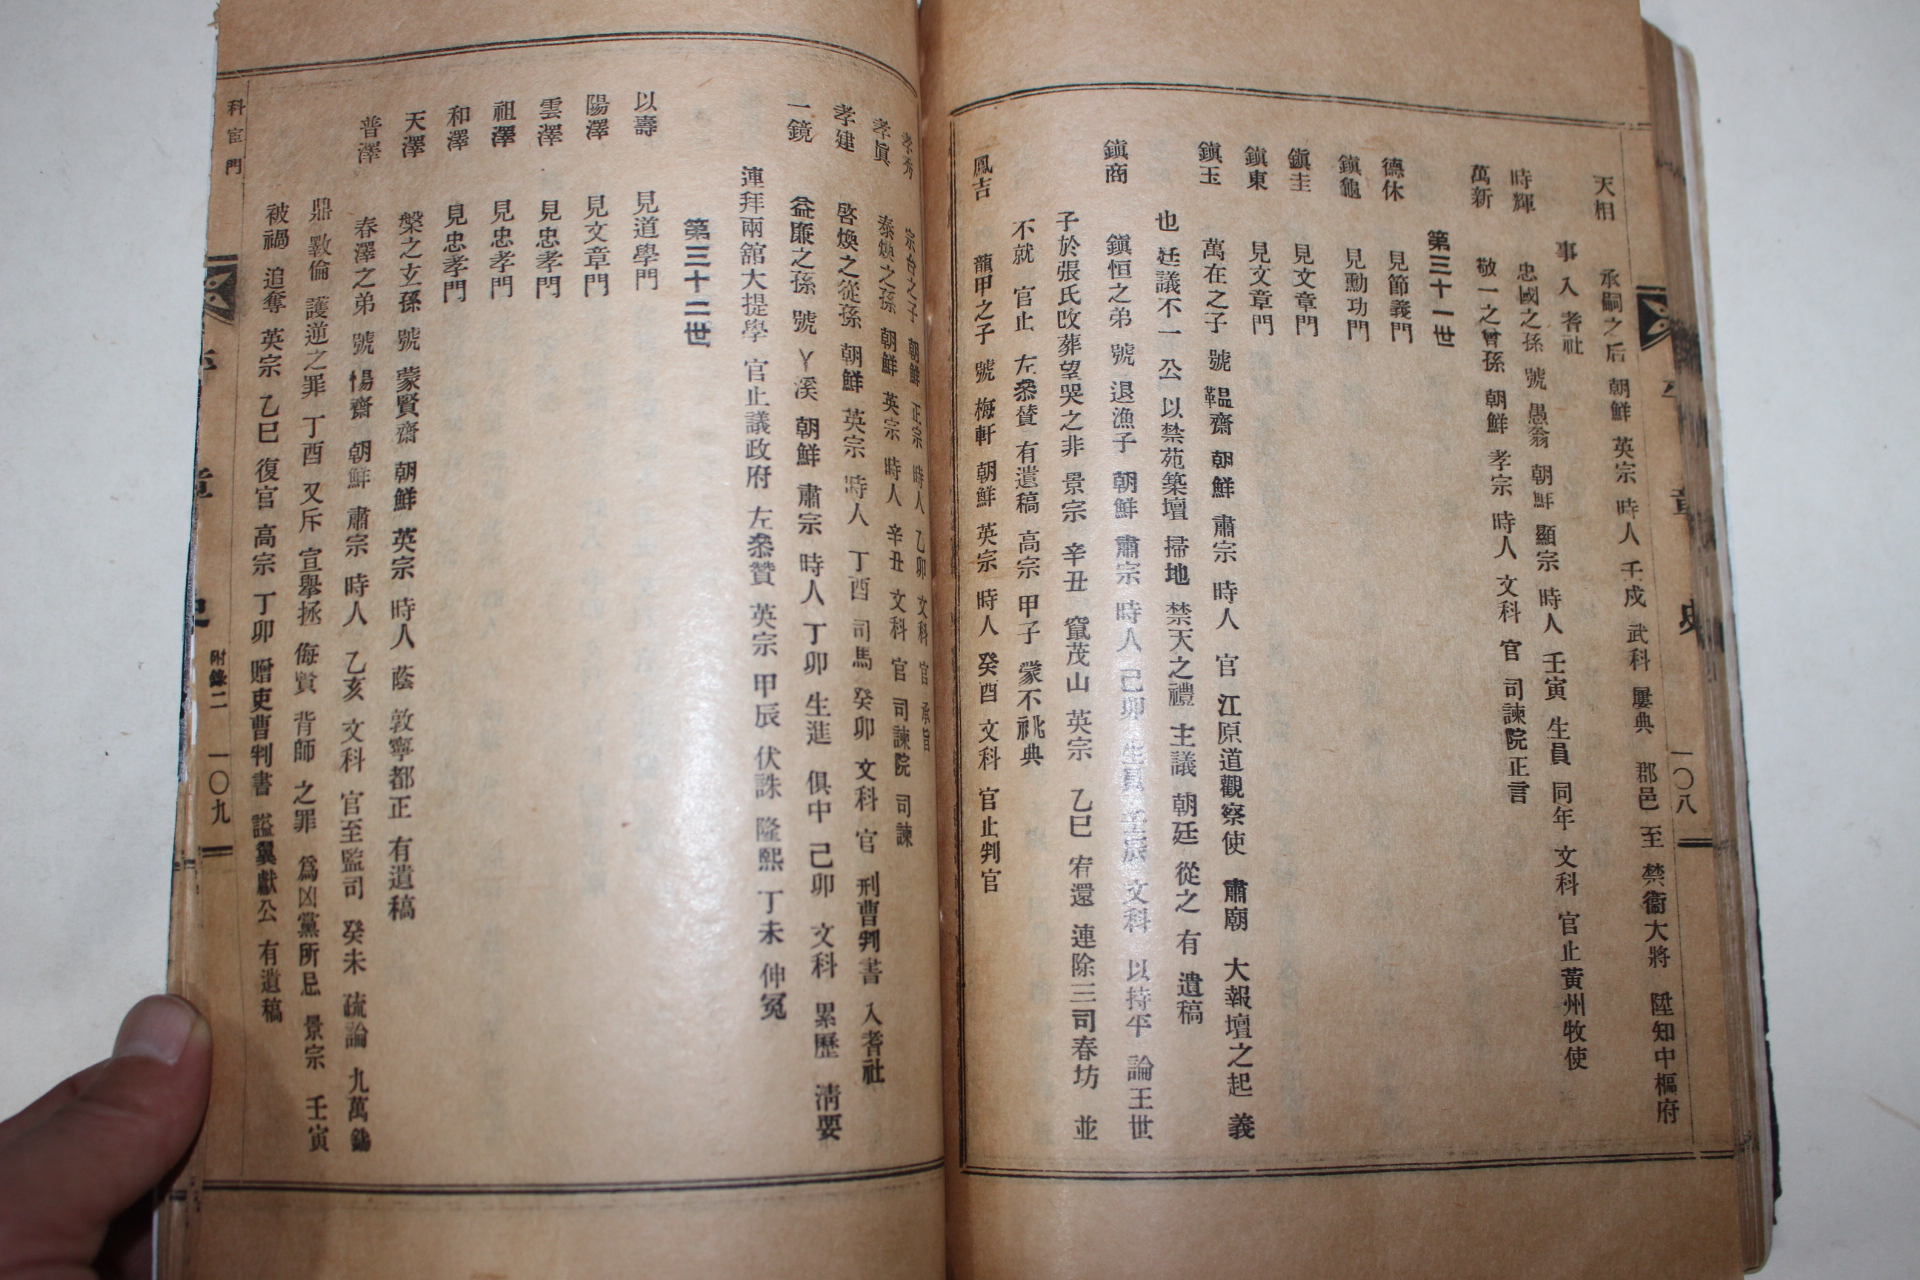 天相 承嗣之后 朝鮮 英宗 時人 壬戌 武科 屢典 郡邑 至 禁衞大將 陞知中樞府
事 入 耆社
時輝 忠國之孫 號 愚翁 朝鮮 顯宗 時人 壬寅 生員 同年 文科 官止黃州牧使
萬新 敬一之曾孫 朝鮮 孝宗 時人 文科 官 司諫院正言
第三十一世
德休 見節義門
鎭龜 見勳功門
鎭圭 見文章門
鎭東 見文章門
鎭玉 萬在之子 號 韞齋 朝鮮 肅宗 時人 官 江原道觀察使 肅廟 大報壇之起 義
也 廷議不一 公 以禁苑築壇 掃地 禁天之禮 主議 朝廷 從之 有 遺稿
鎭商 鎭恒之弟 號 退漁子 朝鮮 肅宗 時人 己卯 生員 壬辰 文科 以持平 論王世
子於張氏改葬望哭之非 景宗 辛丑 竄茂山 英宗 乙巳 宥還 連除三司春坊 並
不就 官止 左叅贊 有遺稿 高宗 甲子 蒙不祧典
鳳吉 龍甲之子 號 梅軒 朝鮮 英宗 時人 癸酉 文科 官止判官
一〇八
孝秀 宗台之子 朝鮮 正宗 時人 乙卯 文科 官 承旨
孝眞 泰煥之孫 朝鮮 英宗 時人 辛丑 文科 官 司諫院 司諫
孝建 啓煥之從孫 朝鮮 英宗 時人 丁酉 司馬 癸卯 文科 官 刑曹判書 入耆社
一鏡 益廉之孫 號 丫溪 朝鮮 肅宗 時人 丁卯 生進 俱中 己卯 文科 累歷 淸要
連拜兩舘大提學 官止議政府 左叅贊 英宗 甲辰 伏誅 隆熙 丁未 伸冤
第三十二世
以壽 見道學門
陽澤 見文章門
雲澤 見忠孝門
祖澤 見忠孝門
和澤 見忠孝門
天澤 槃之玄孫 號 蒙賢齋 朝鮮 英宗 時人 蔭 敦寧都正 有遺稿
普澤 春澤之弟 號 惕齋 朝鮮 肅宗 時人 乙亥 文科 官至監司 癸未 疏論 九萬 錫
鼎 斁倫 護逆之罪 丁酉 又斥 宣擧拯 侮賢 背師 之罪 爲凶黨所忌 景宗 壬寅
被禍 追奪 英宗 乙巳 復官 高宗 丁卯 贈吏曹判書 謚翼獻公 有遺稿
科宦門
附錄二 一〇九